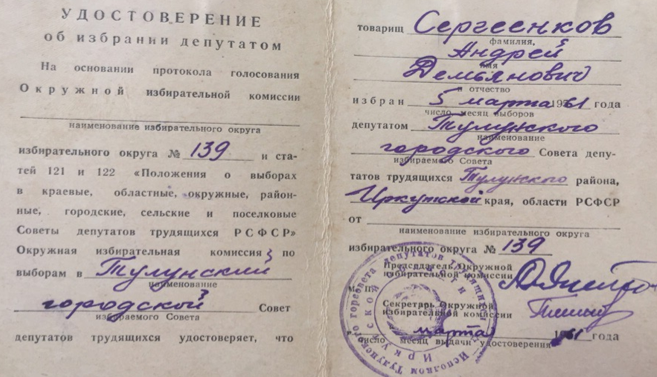 УДОСТОВЕРЕНИЕ
об избрании депутатом
На основании протокола голосования
Окружной избирательной комиссии
наименование избирательного округа
избирательного округа № 139 и ста-
тей 121 и 122 «Положения о выборах
в краевые, областные, окружные, район-
ные, городские, сельские и поселковые
Советы депутатов трудящихся РСФСР»
Окружная избирательная комиссия по
выборам в Тулунский
наименование
городской Совет
избираемого Совета
депутатов трудящихся удостоверяет, что
товарищ Сергеенков
фамилия,
Андрей
имя
Демьянович
и отчество
избран 5 марта 1961 года
число месяц выборов
депутатом Тулунского
наименование
городского Совета депу-
избираемого Совета
татов трудящихся Тулунского района,
Иркутской края, области РСФСР
от
наименование избирательного округа
избирательного округа № 139
Председатель Окружной
избирательной комиссии
Секретарь Окружной
избирательной комиссии
марта 1961 года
число месяц выдачи удостоверения
Исполком Тулунского горсовета депутатов трудящихся